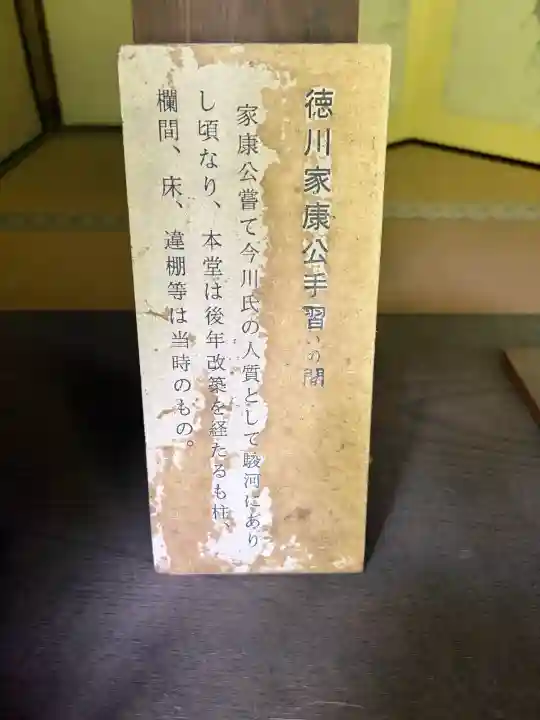 徳川家康公手習いの間
家康公嘗て今川氏の人質として駿河にあり
し頃なり、本堂は後年改築を経たるも柱、
欄間、床、違棚等は当時のもの。